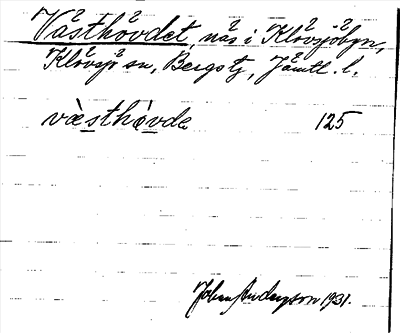 Västhovdet, näs i Klövsjöbyn,
Klövsjö sn, Bergs tg, Jämtl. l.
væ̀sthòvde 125
Johan Anderson 1931.